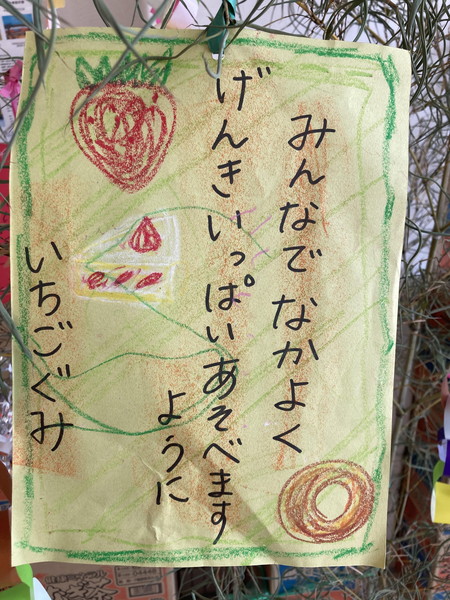 みんなで なかよく
げんきいっぱいあそべます
ように
いちごぐみ